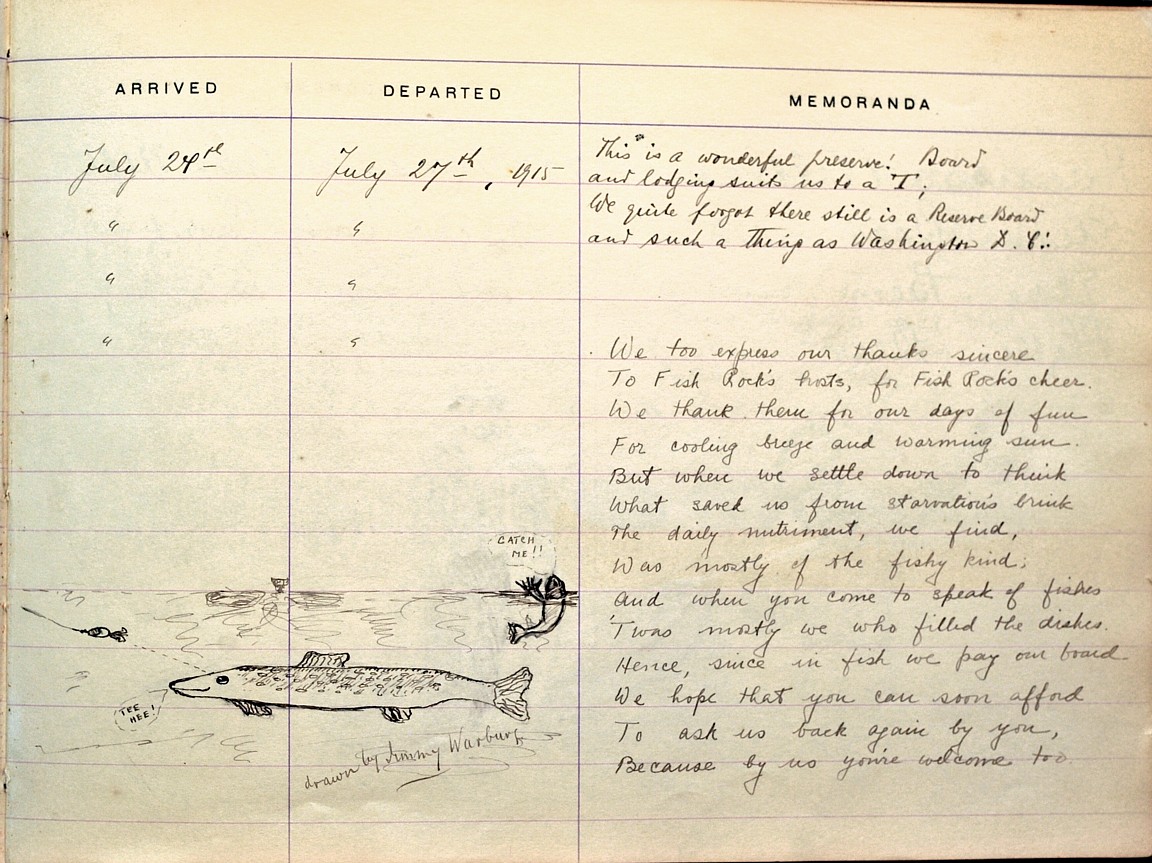 ARRIVED DEPARTED MEMORANDA
July 24th July 27th, 1915
" "
" "
" "
This is a wonderful preserve! Board
and lodging suits us to a "T";
We quite forgot there still is a Reserve Board
and such a thing as Washington D. C.!
We too express our thanks sincere
To Fish Rock's hosts, for Fish Rock's cheer.
We thank them for our days of fun
For cooling breeze and warming sun.
But when we settle down to think
What saved us from starvation's brink
The daily nutriment, we find,
Was mostly of the fishy kind;
And when you come to speak of fishes
'Twas mostly we who filled the dishes.
Hence, since in fish we pay our board
We hope that you can soon afford
To ask us back again by you,
Because by us you're welcome too.
CATCH
ME!!
TEE
HEE!
drawn by Jimmy Warburg